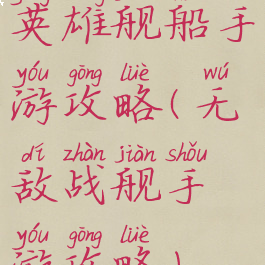 英雄舰船手
yóu gōng lüè wú
游攻略(无
dí zhàn jiàn shǒu
敌战舰手
yóu gōng lüè
游攻略)